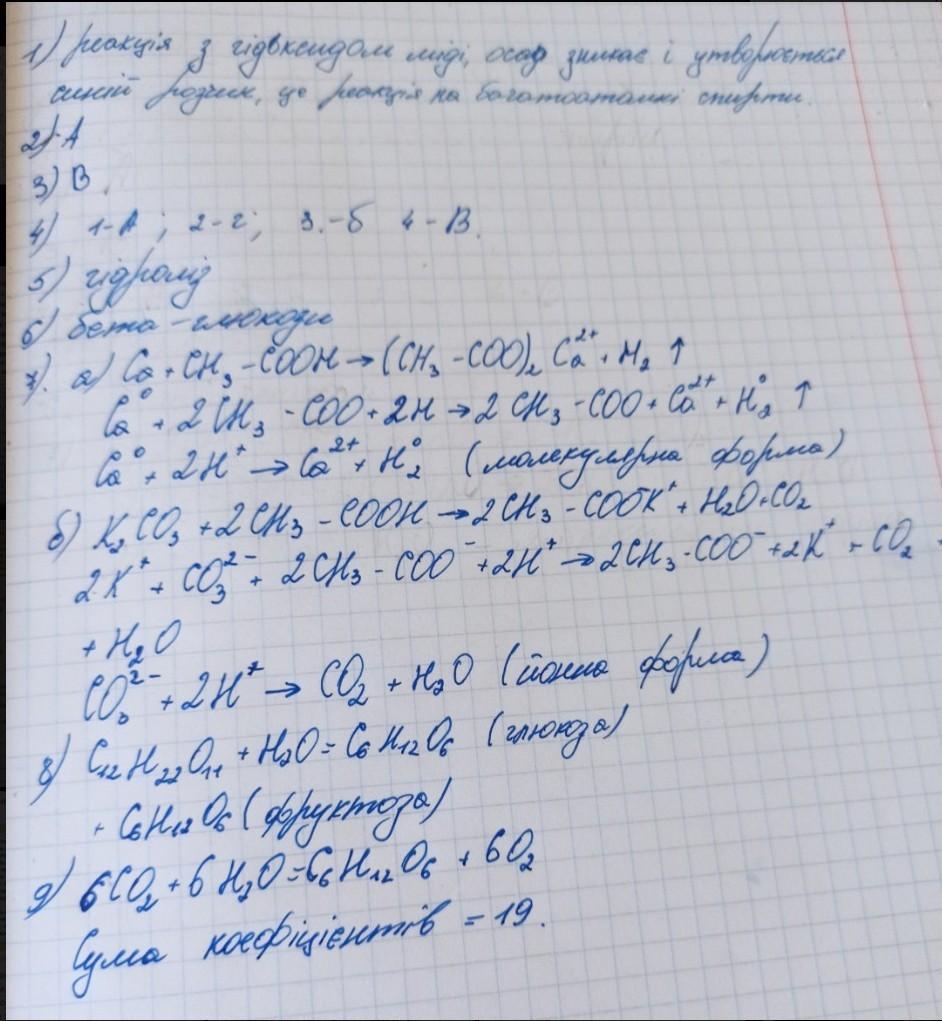 1) реакція з гідвксидом міді, осад зникає і утворюється
синій розчин, це реакція на багатоатомні спирти.
2) А
3) В.
4) 1-А; 2-г; 3.-б 4-В.
5) гідроліз
6) бета-глюкози
7). а) Ca + CH₃-COOH → (CH₃-COO)₂ Ca²⁺ + H₂ ↑
Ca⁰ + 2CH₃-COO + 2H → 2CH₃-COO + Ca²⁺ + H₂⁰ ↑
Ca⁰ + 2H⁺ → Ca²⁺ + H₂⁰ (молекулярна форма)
б) K₂CO₃ + 2CH₃-COOH → 2CH₃-COO⁻K⁺ + H₂O + CO₂
2K⁺ + CO₃²⁻ + 2CH₃-COO⁻ + 2H⁺ → 2CH₃-COO⁻ + 2K⁺ + CO₂ +
+ H₂O
CO₃²⁻ + 2H⁺ → CO₂ + H₂O (йонна форма)
8) C₁₂H₂₂O₁₁ + H₂O = C₆H₁₂O₆ (глюкоза)
+ C₆H₁₂O₆ (фруктоза)
9) 6CO₂ + 6H₂O = C₆H₁₂O₆ + 6O₂
Сума коефіцієнтів = 19.